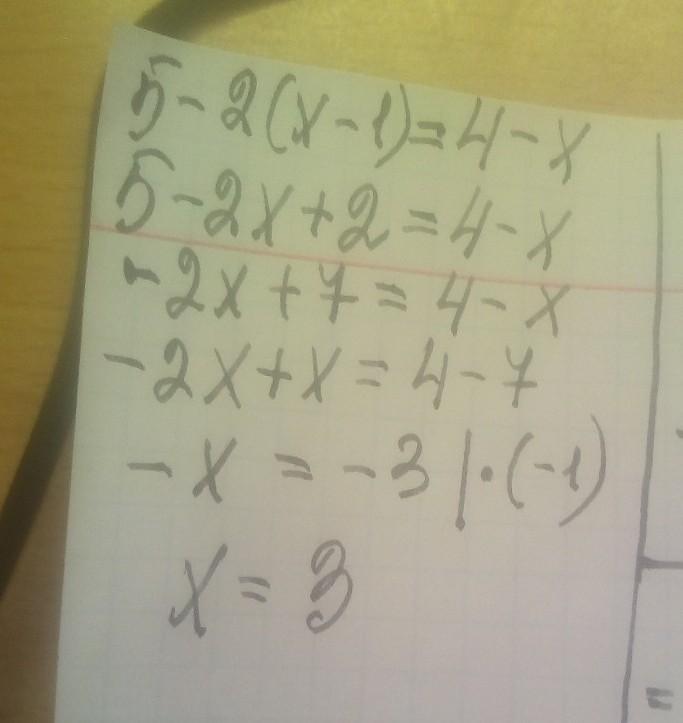 5-2(x-1)=4-x
5-2x+2=4-x
-2x+7=4-x
-2x+x=4-7
-x=-3|·(-1)
x=3
=